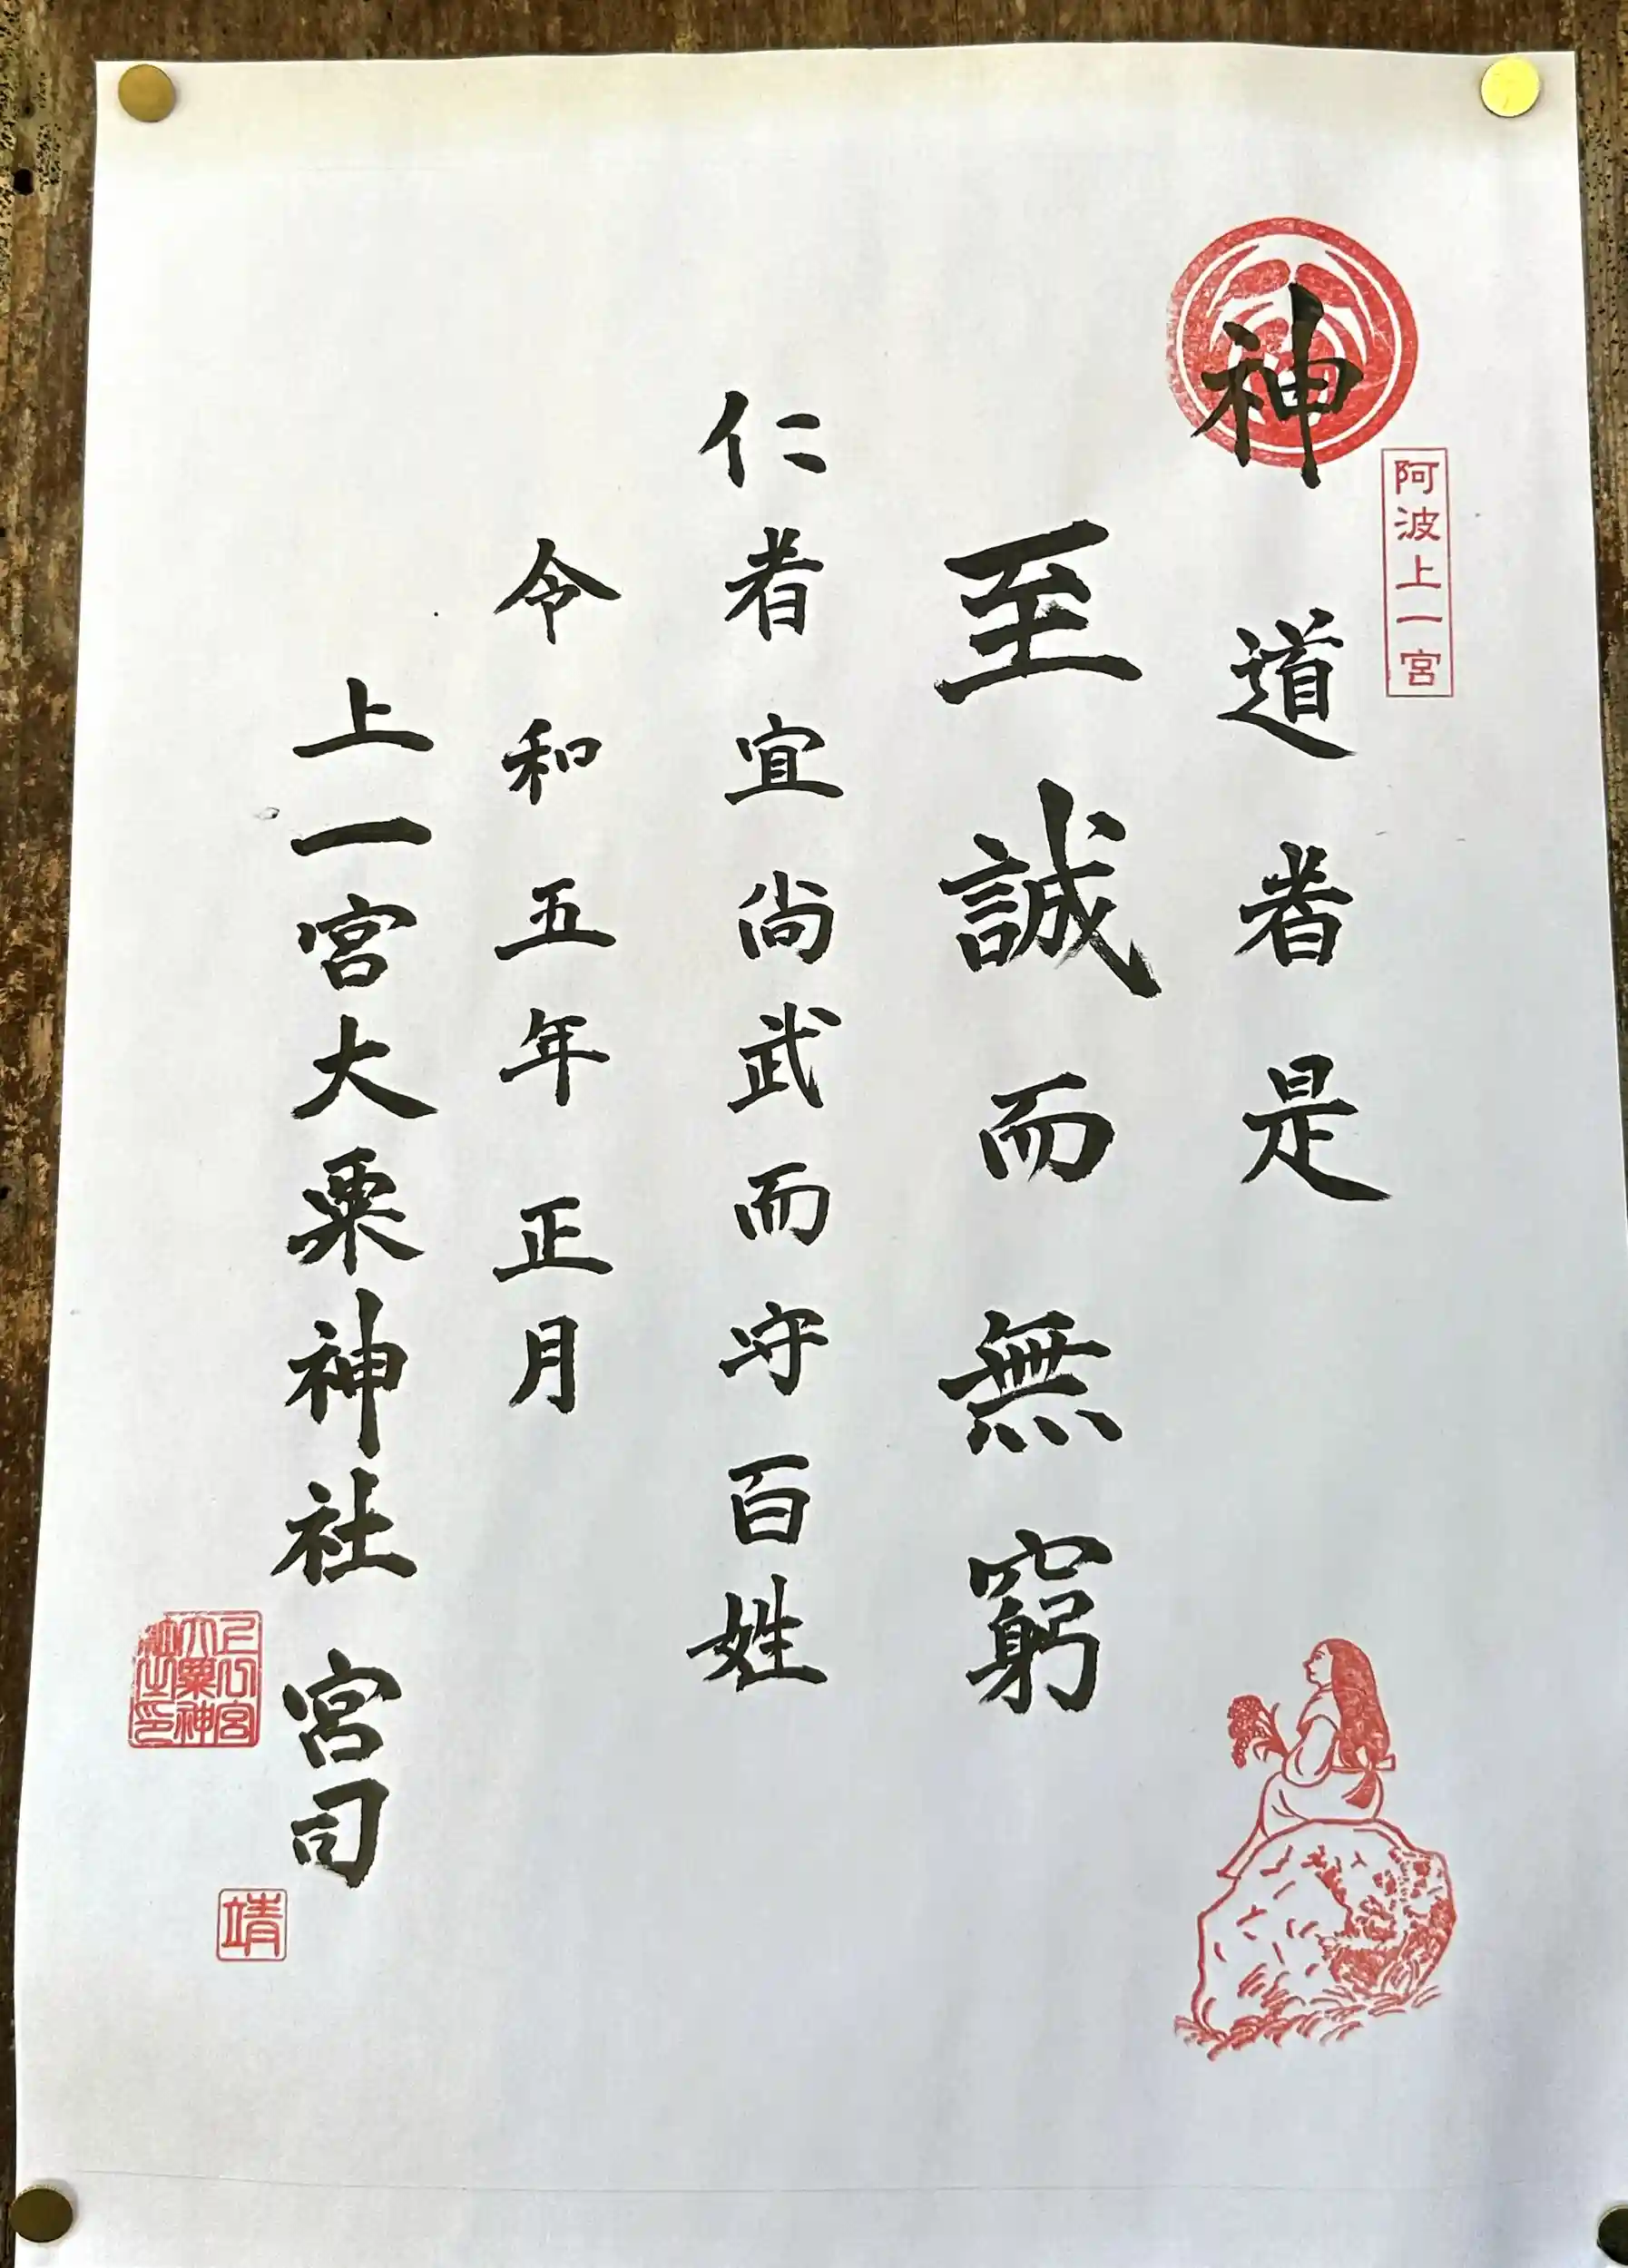 阿波上一宮
神道者是
至誠而無窮
仁者宜尚武而守百姓
令和五年正月
上一宮大粟神社 宮司
靖